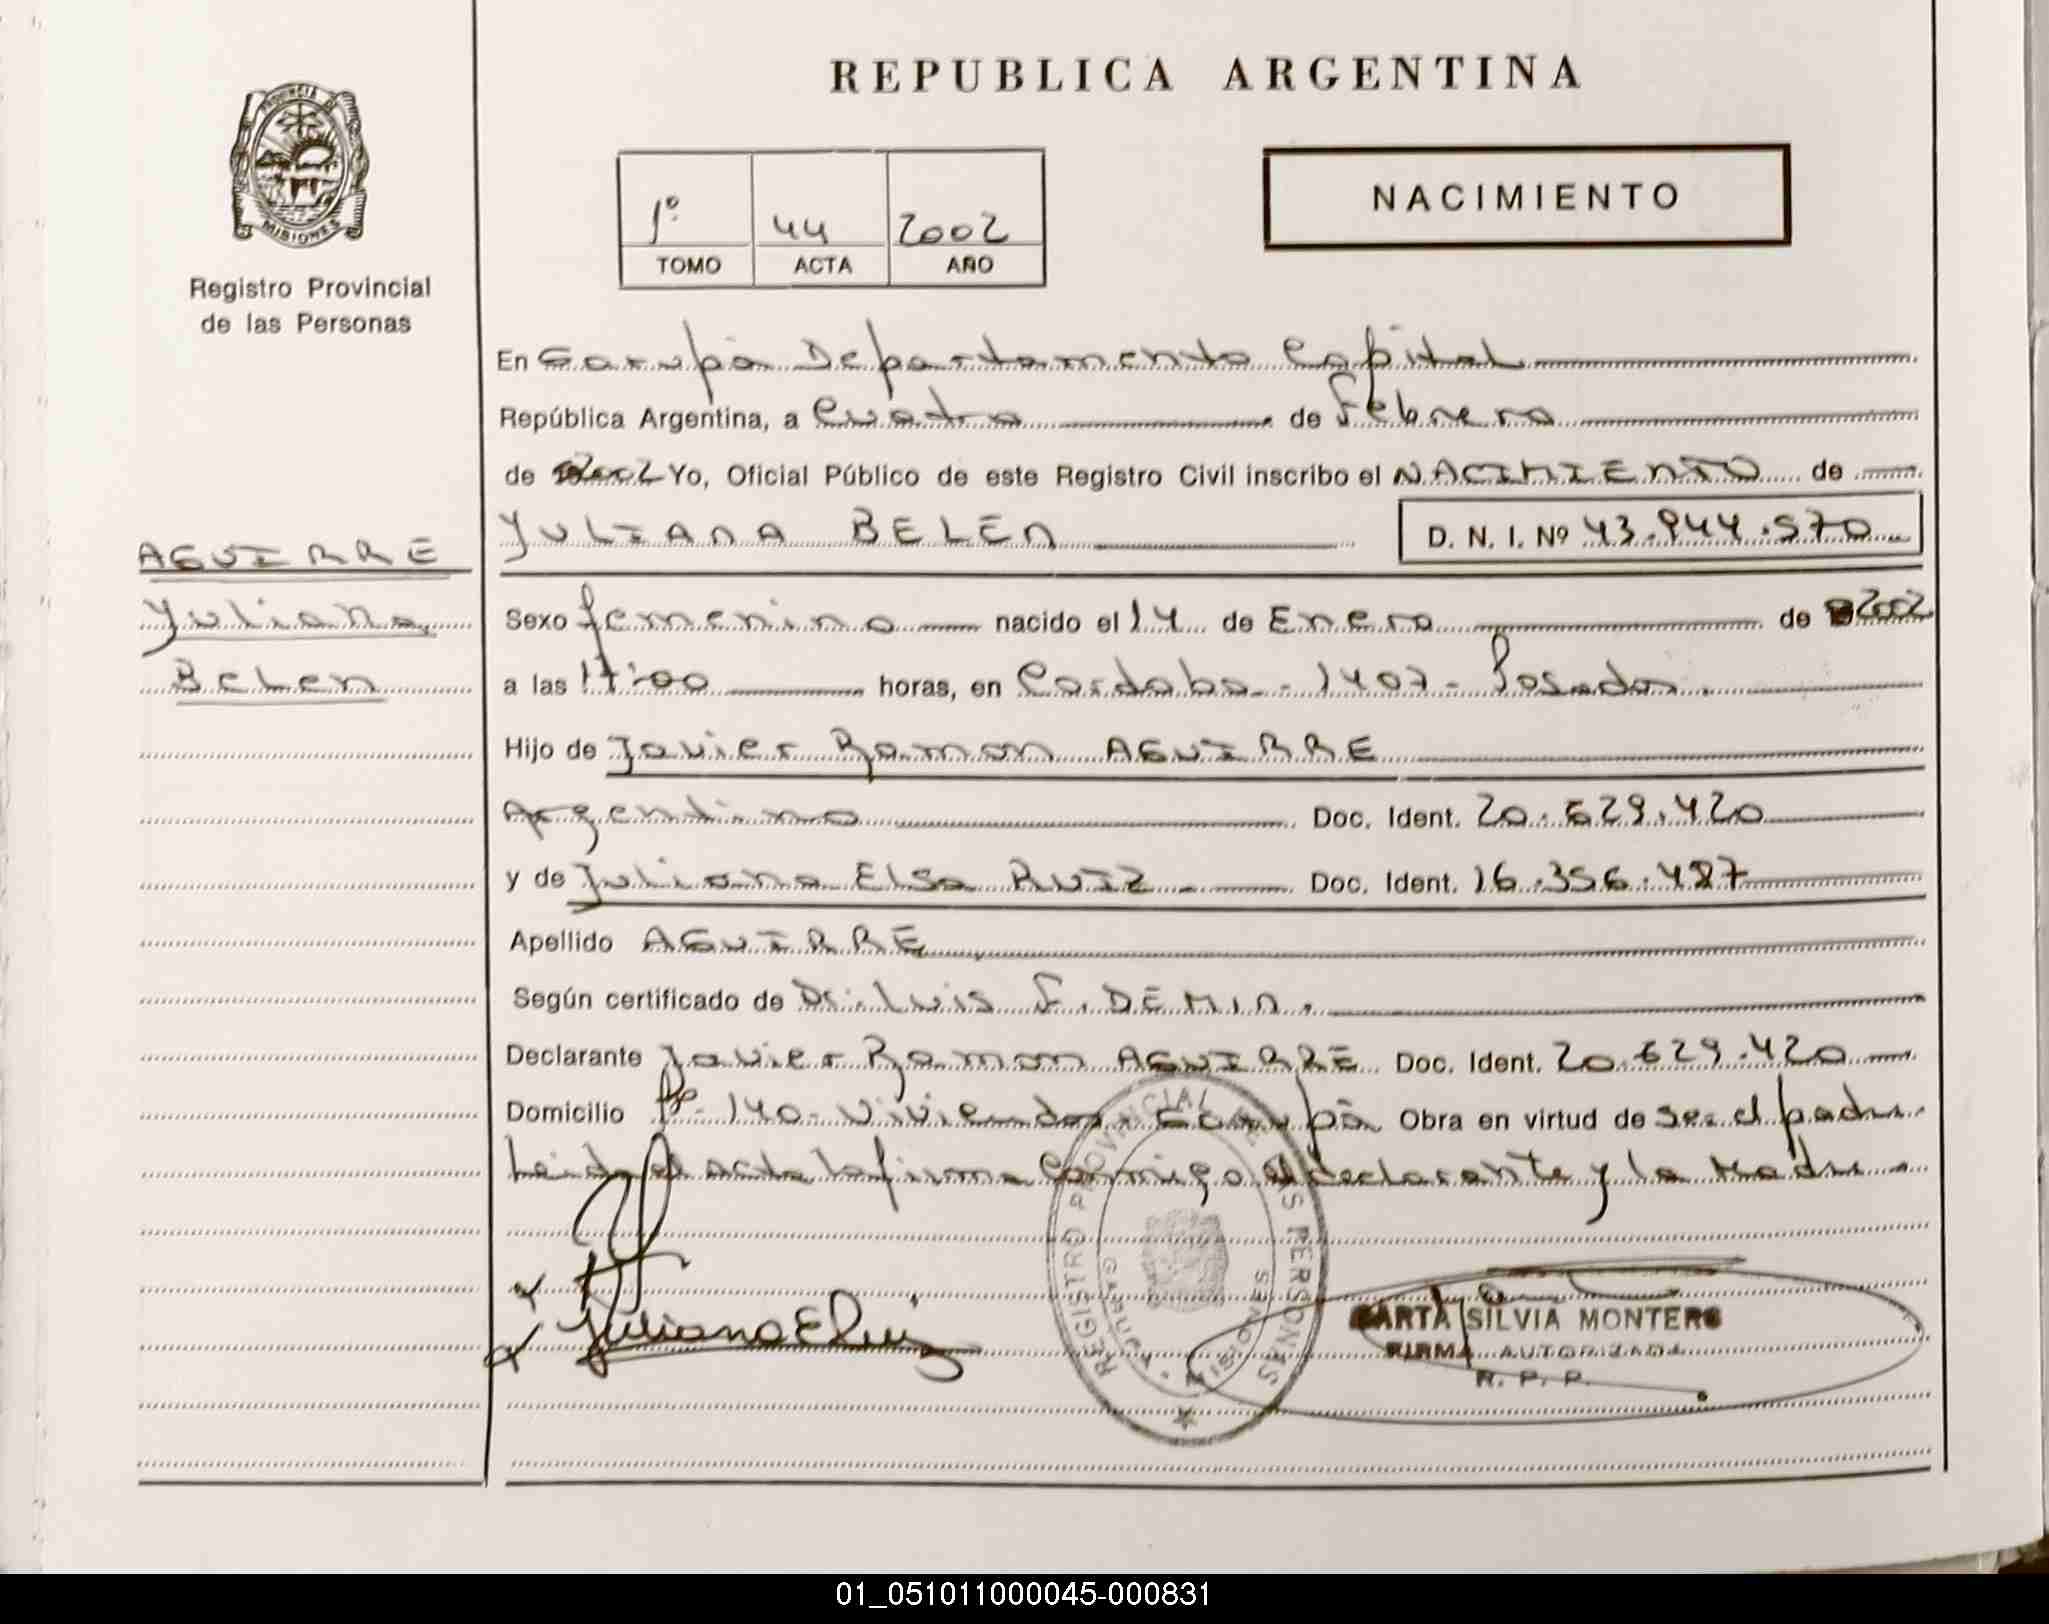 REPUBLICA ARGENTINA
PROVINCIA DE
MISIONES
Registro Provincial
de las Personas
1º 44 2002
TOMO ACTA AÑO
NACIMIENTO
En Garupá Departamento Capital
República Argentina, a Cuatro de Febrero
de 2002 Yo, Oficial Público de este Registro Civil inscribo el NACIMIENTO de
YULIANA BELÉN D. N. I. Nº 43.944.570
AGUIRRE
Yuliana
Belen
Sexo femenino nacido el 14 de Enero de 2002
a las 17:00 horas, en Cordoba - 1407 - Posadas.
Hijo de Javier Ramon AGUIRRE
Argentino Doc. Ident. 20.629.420
y de Juliana Elsa RUIZ Doc. Ident. 16.356.487
Apellido AGUIRRE
Según certificado de Dr. Luis F. DEMIN.
Declarante Javier Ramon AGUIRRE Doc. Ident. 20.629.420
Domicilio Bº 140 - Viviendas Garupá Obra en virtud de ser el padre
Leida el acta la firma conmigo el declarante y la Madre
REGISTRO PROVINCIAL DE LAS PERSONAS
GARUPA MISIONES
Juliana E Ruiz
SILVIA MONTERO
FIRMA AUTORIZADA
R. P. P.
01_051011000045-000831